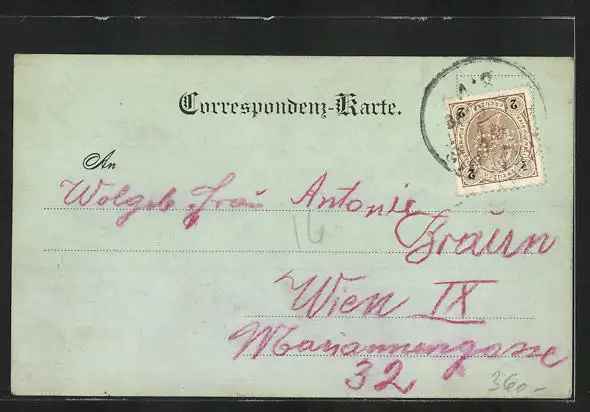 Correspondenz-Karte.
2 2
KREUZER
2 2
An
Wolgeb Frau Antonie
16
Braun
Wien IX
Mariannengasse
32
360-